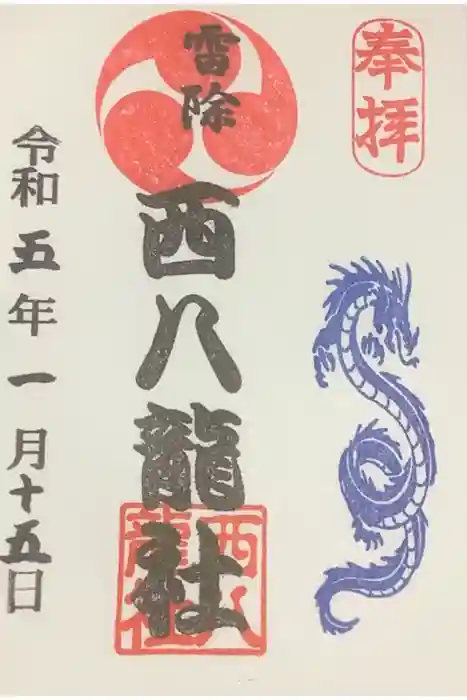 奉拝
雷除
西八龍社
西八
龍社
令和五年一月十五日